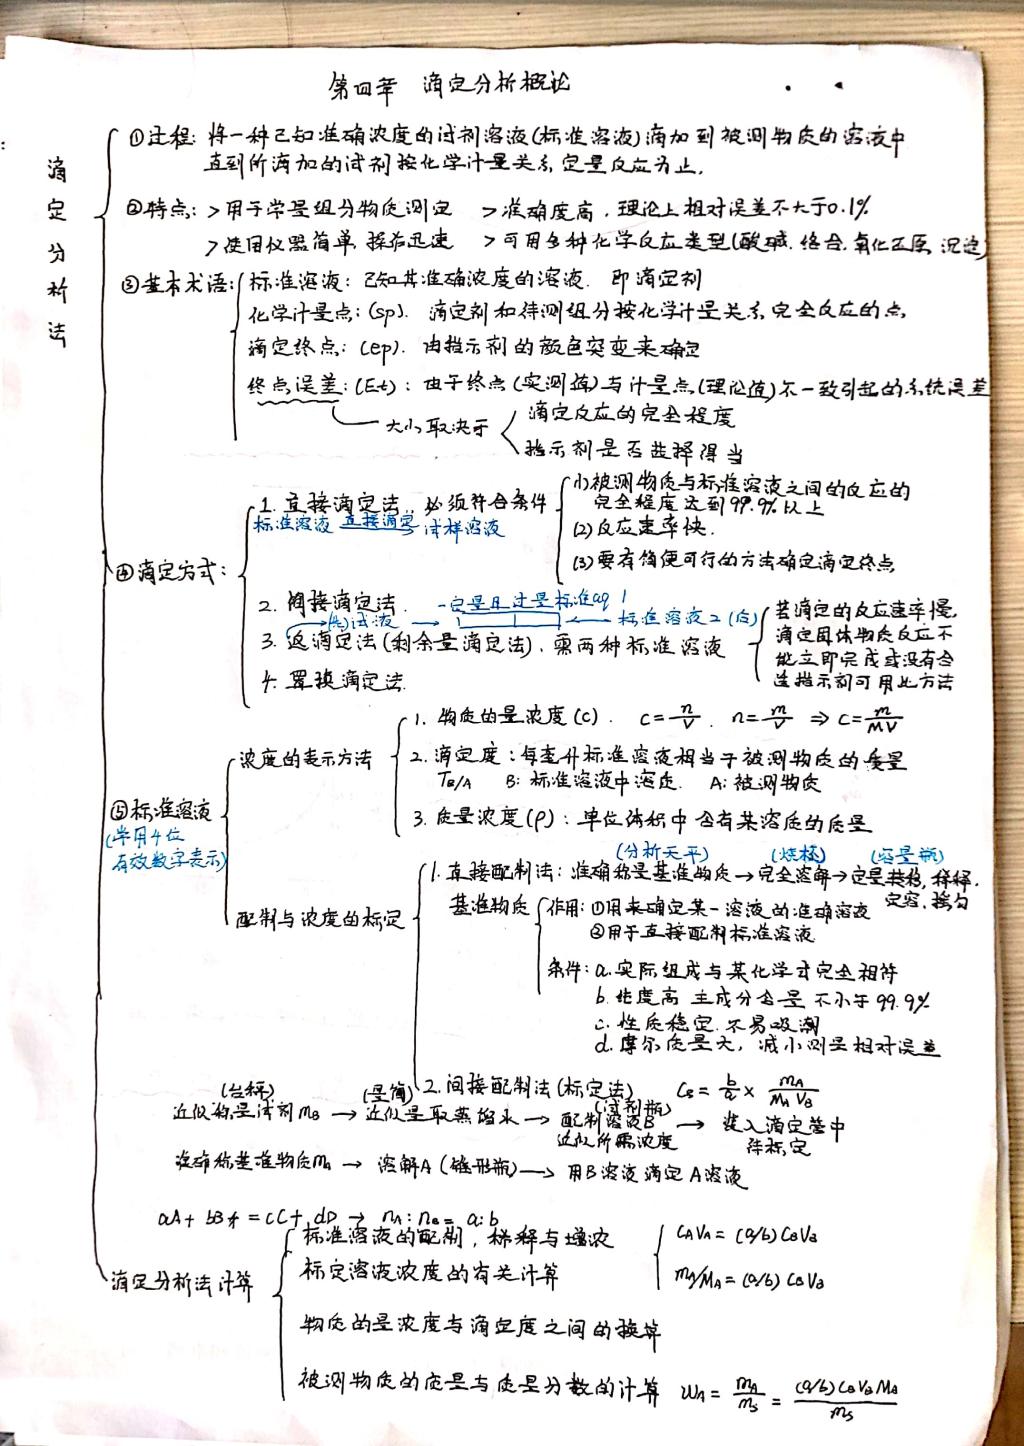 第四章 滴定分析概论
滴定分析法
①过程: 将一种已知准确浓度的试剂溶液(标准溶液)滴加到被测物质的溶液中
直到所滴加的试剂按化学计量关系定量反应为止.
②特点: >用于常量组分物质测定 >准确度高, 理论上相对误差不大于0.1%
>使用仪器简单, 操作迅速 >可用多种化学反应类型(酸碱. 络合. 氧化还原. 沉淀)
③基本术语: 标准溶液: 已知其准确浓度的溶液. 即滴定剂
化学计量点: (sp). 滴定剂和待测组分按化学计量关系完全反应的点.
滴定终点: (ep). 由指示剂的颜色突变来确定
终点误差: (Et): 由于终点(实测值)与计量点(理论值)不一致引起的系统误差
大小取决于 滴定反应的完全程度
指示剂是否选择得当
④滴定方式:
1. 直接滴定法, 必须符合条件
标准溶液 直接滴定 试样溶液
(1)被测物质与标准溶液之间的反应的
完全程度达到99.9%以上
(2)反应速率快.
(3)要有简便可行的方法确定滴定终点
2. 间接滴定法.
一定量且过量标准aq 1
(先)试液 → ← 标准溶液2(后)
3. 返滴定法(剩余量滴定法), 需两种标准溶液
若滴定的反应速率慢,
滴定固体物质反应不
能立即完成或没有合
适指示剂可用此方法
4. 置换滴定法.
⑤标准溶液
(常用4位
有效数字表示)
浓度的表示方法
1. 物质的量浓度(c). c=n/V. n=m/V ⇒ c=m/MV
2. 滴定度: 每毫升标准溶液相当于被测物质的质量
TB/A B: 标准溶液中溶质. A: 被测物质
3. 质量浓度(ρ): 单位体积中含有某溶质的质量
配制与浓度的标定
(分析天平) (烧杯) (容量瓶)
1. 直接配制法: 准确称量基准物质→完全溶解→定量转移, 稀释.
定容, 摇匀
基准物质 作用: ①用来确定某一溶液的准确溶液
②用于直接配制标准溶液
条件: a. 实际组成与某化学式完全相符
b. 纯度高 主成分含量 不小于99.9%
c. 性质稳定. 不易吸潮
d. 摩尔质量大, 减小测量相对误差
2. 间接配制法(标定法) CB = b/a × mA/MAVB
(台秤) (量筒) (试剂瓶)
近似称量试剂mB → 近似量取蒸馏水 → 配制溶液B → 装入滴定管中
近似所需浓度 待标定
准确称基准物质mA → 溶解A(锥形瓶) → 用B溶液滴定A溶液
滴定分析法计算
= cC + dD → nA: nB = a:b
标准溶液的配制, 稀释与增浓 CAVA = (a/b) CBVB
标定溶液浓度的有关计算 mA/MA = (a/b) CBVB
物质的量浓度与滴定度之间的换算
被测物质的质量与质量分数的计算 WA = mA/ms = (a/b) CBVBMA/ms